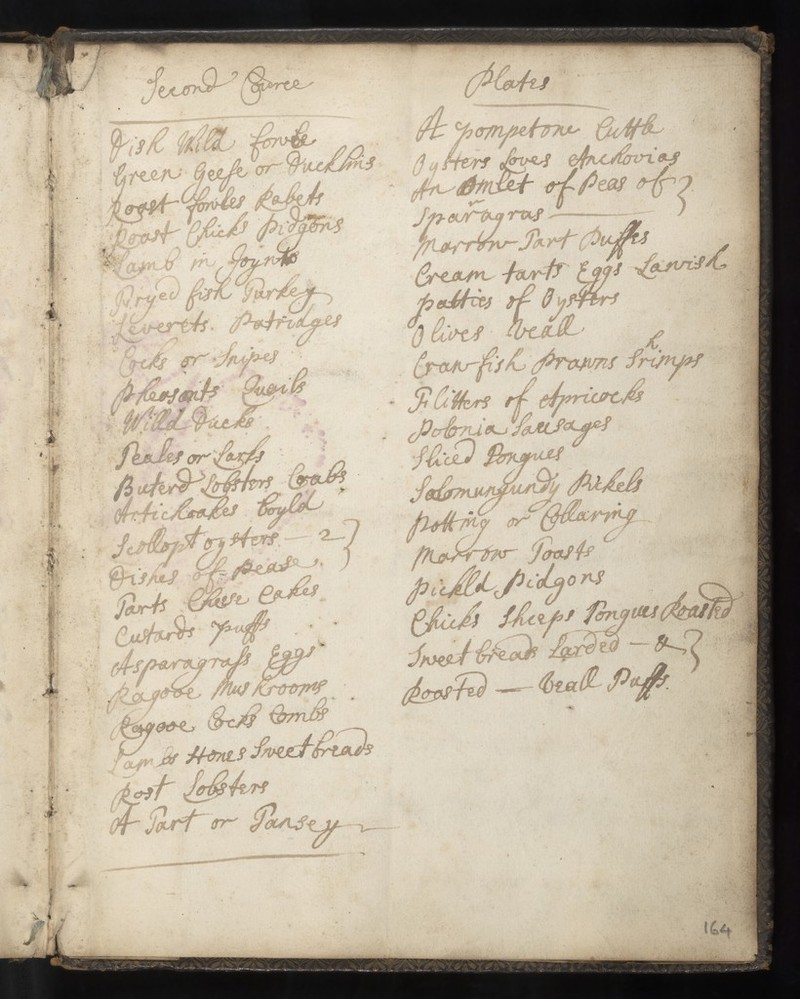 Second Cource
Dish Wild fowls
Green Geese or Ducklins
Roast fowles Rabets
Roast Chicks Pidgons
Lamb in Joynts
Fryed fish Turkey
Leverets. Patridges
Cocks or Snipes
Pheasants Quails
Willd Ducks
Teales or Larks
Buterd Lobsters Crabs
Artichoakes boyld
Scollopt oysters — 2 }
Dishes of Pease
Tarts Cheese Cakes
Cutards Puffs
Asparagrass Eggs
Ragooe Muskrooms
Ragooe Cocks Combs
Lambs stones Sweetbreads
Rost Lobsters
A Tart or Tansey
Plates
A pompetone Cuttle
Oysters Loves Anchovias
An Omlet of Peas of }
Sparragras
Marrow Tart Puffes
Cream tarts Eggs Lavish
patties of Oysters
Olives Veall
Craw-fish Prawns Srhimps
Flitters of Apricocks
Polonia Sausages
Sliced Tongues
Salomungundy Pickels
Potting or Collaring
Marrow Toasts
Pickld Pidgons
Chicks Sheeps Tongues Roasted
Sweetbreads Larded — & }
Roasted — Veall Puffs.
164